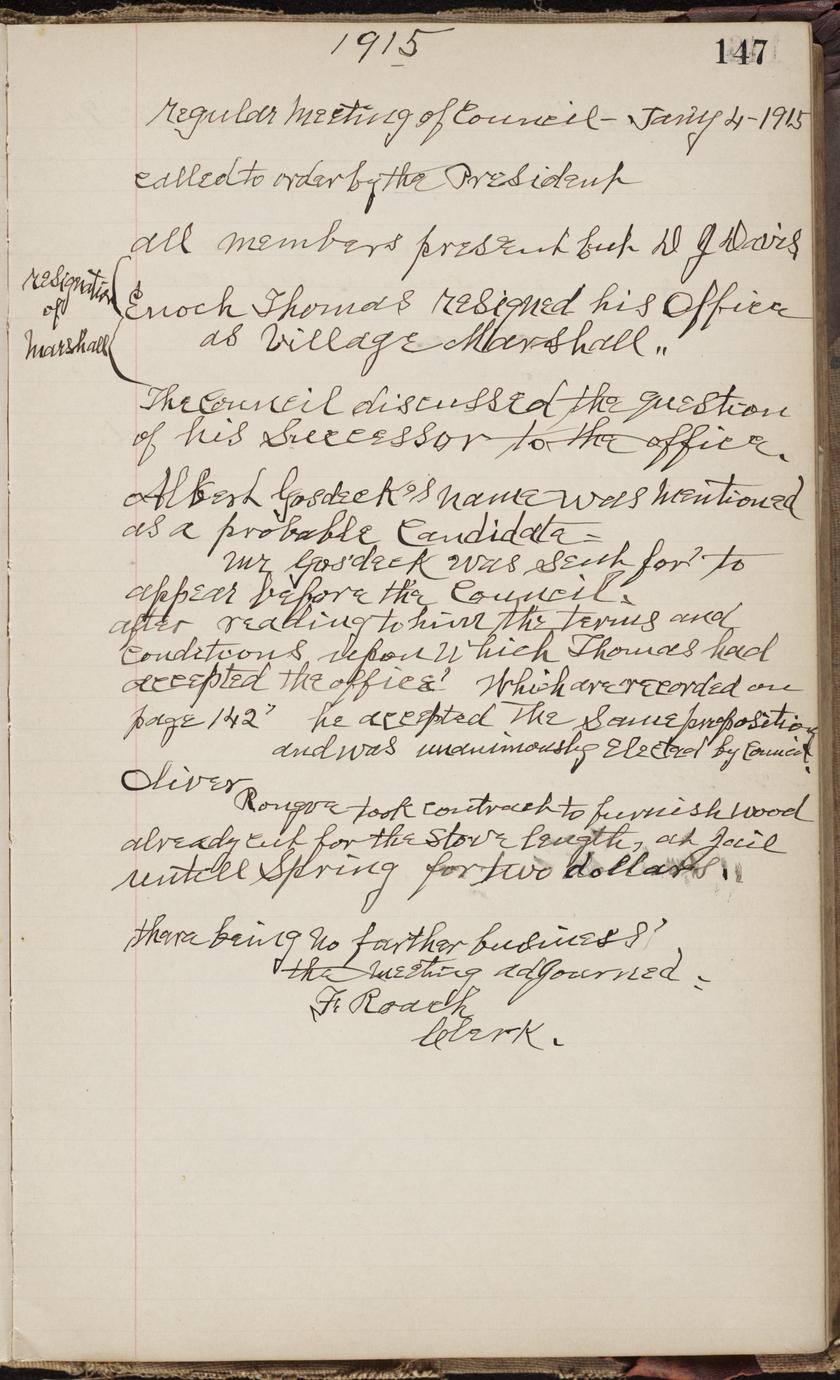 1915
147
regular Meeting of Council - Jan'y 4 - 1915
called to order by the President
all members present but D J Davis
resignation
of
Marshall
Enoch Thomas resigned his Office
as Village Marshall "
The Council discussed the question
of his Successor to the office.
Albert Gosdeck's name was Mentioned
as a probable Candidate =
Mr Gosdeck was sent for' to
appear before the Council.
after reading to him the terms and
conditions upon Which Thomas had
accepted the office' Which are recorded on
page 142" he accepted The Same proposition
and was unanimously Elected by Council.
Oliver
Rongve took contract to furnish wood
already cut for the Stove length, at Jail
untill Spring for two dollars.
there being no farther business'
the Meeting adjourned =
F. Roach
Clerk.